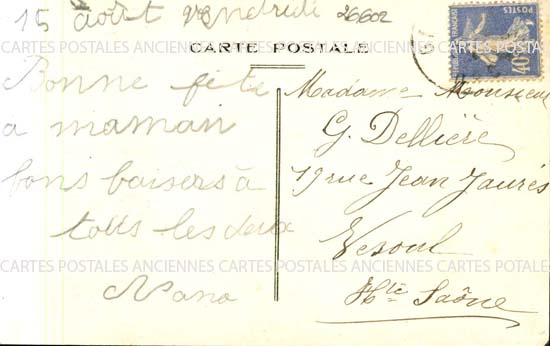 15 août vendredi 26602
CARTE POSTALE
Bonne fête
a maman
bons baisers à
tous les deux
Nano
Madame Monsieur
G. Dellière
19 rue Jean Jaurès
Vesoul
Hte Saône
POSTES
FRANÇAISE
40c
CARTES POSTALES ANCIENNES CARTES POSTALES ANCIENNES CARTES POSTALES
CARTES POSTALES ANCIENNES CARTES POSTALES ANCIENNES CARTES POTALES